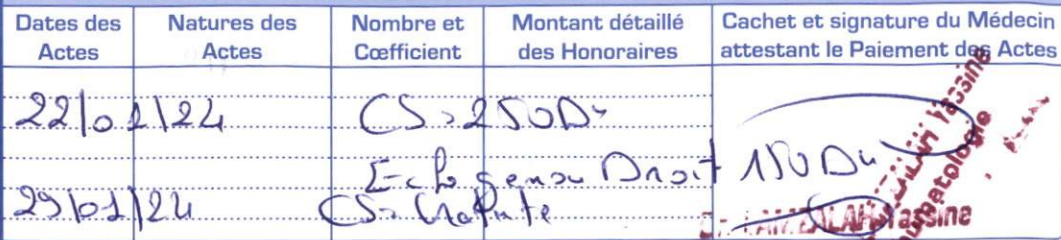 Dates des Actes Natures des Actes Nombre et Cœfficient Montant détaillé des Honoraires Cachet et signature du Médecin attestant le Paiement des Actes
22/01/24 CS = 250Dh
Echo genou Droit 150Dh
29/01/24 CS = Gratuite
Yassine